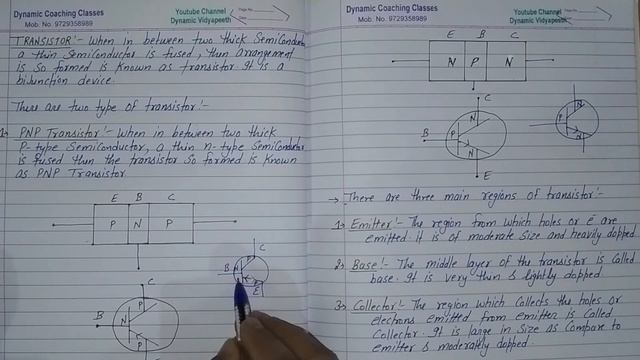 Dynamic Coaching Classes
Mob: No. 9729358989
Youtube Channel
Dynamic Vidyapeeth
TRANSISTOR:- When in between two thick Semiconductor
a thin Semiconductor is fused, then arrangement
is So formed is known as transistor It is a
bijunction device.
There are two type of transistor:-
1) PNP Transistor:- When in between two thick
P-type Semiconductor, a thin n-type Semiconductor
is fused then the transistor So formed is known
as PNP Transistor
E B C
P N P
C
B N
E
C
B
P
N
P
Dynamic Coaching Classes
Mob: No. 9729358989
Youtube Channel
Dynamic Vidyapeeth
E B C
N P N
C
N
B P
N
E
N
P
N
→ There are three main regions of transistor:-
1) Emitter:- The region from which holes or e are
emitted it is of moderate size and heavily dopped.
2) Base:- The middle layer of the transistor is called
base. It is very thin & lightly dopped.
3) Collector:- The region which Collects the holes or
electrons emitted from emitter is Called
Collector. It is large in Size as Compare to
emitter & moderately dopped.